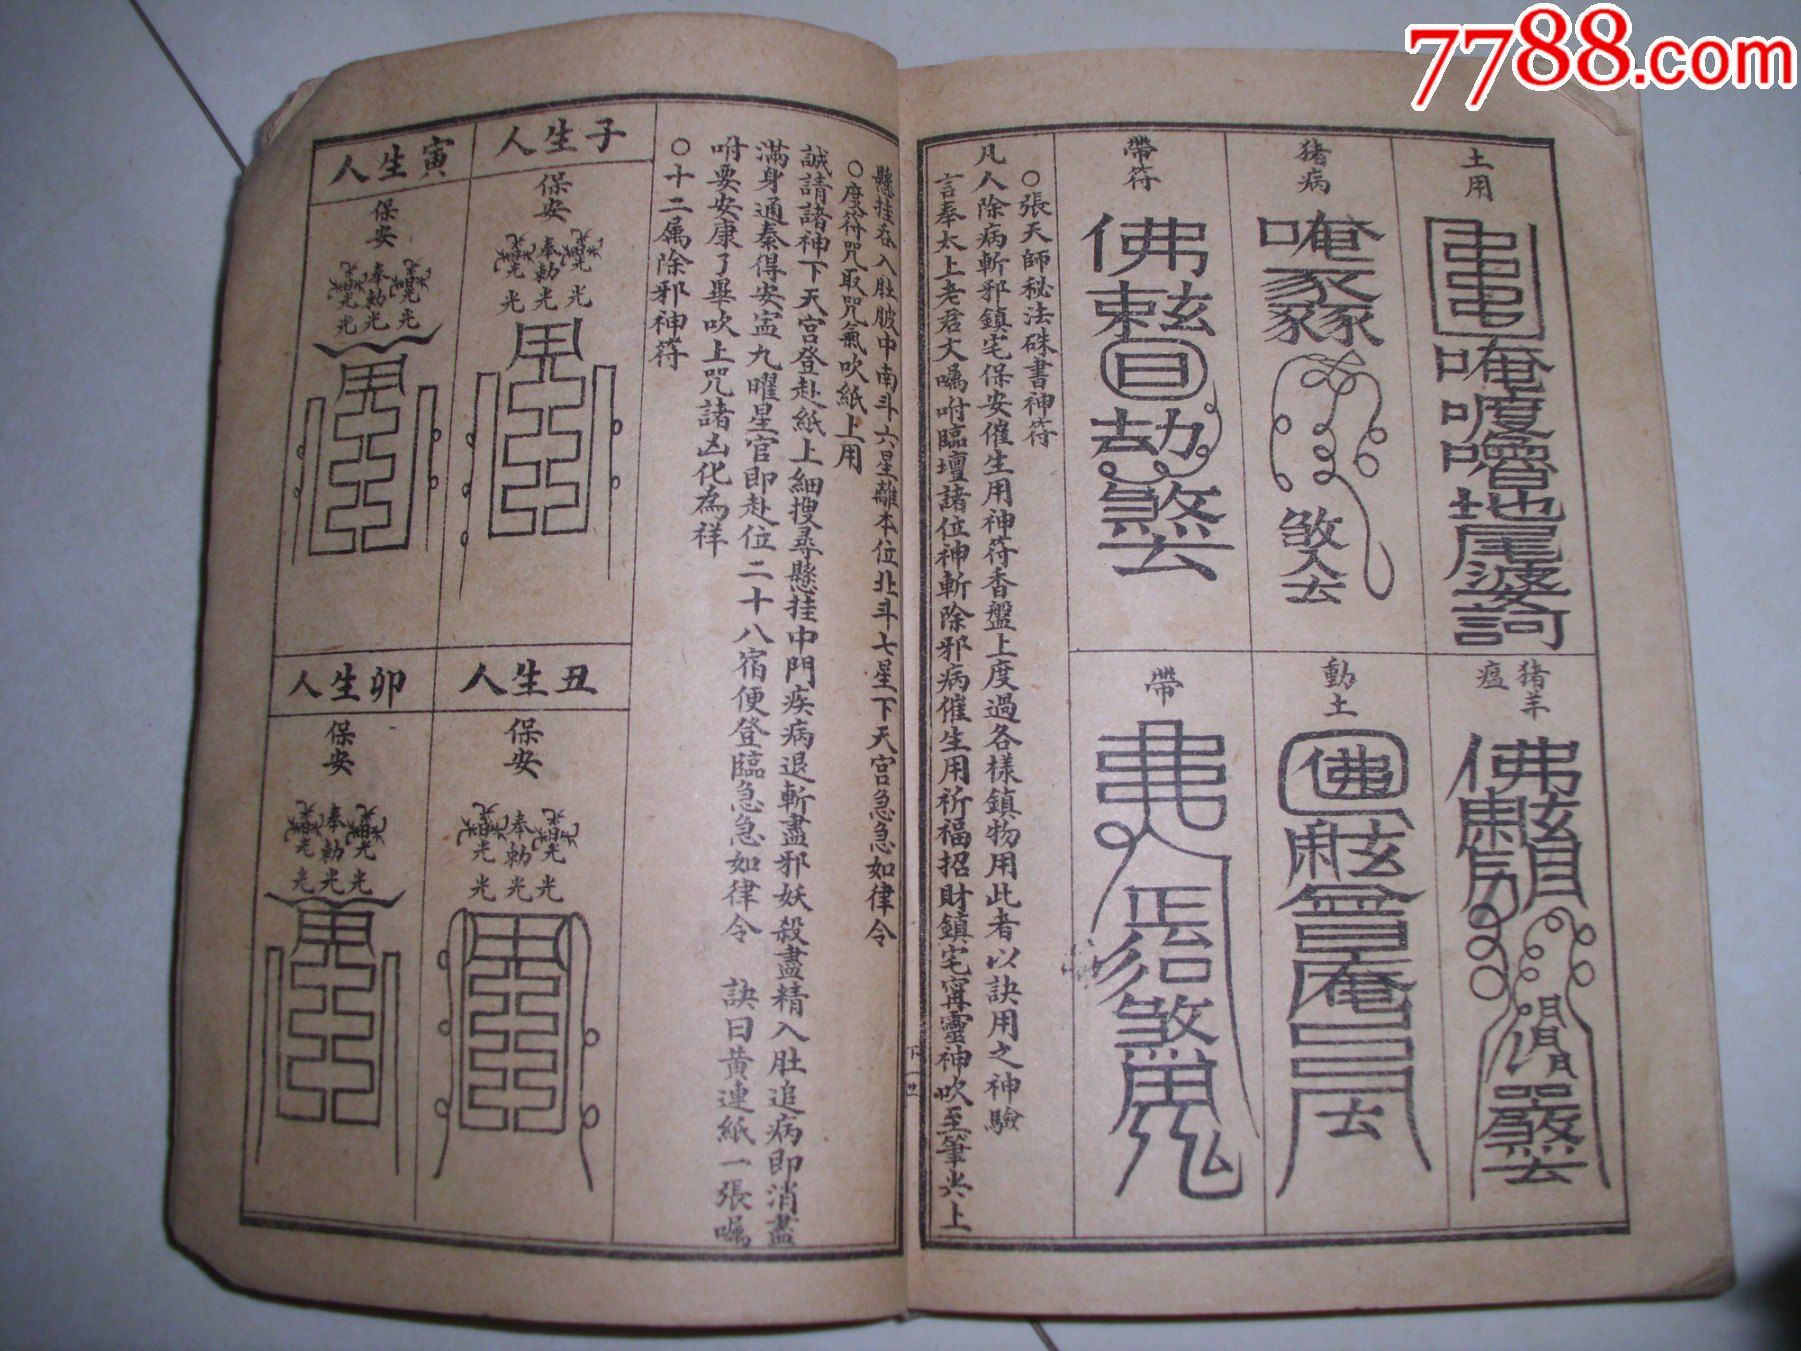 7788.com
土用
唵
嚕
地
尾
婆
訶
猪病
唵
煞人去
帶符
佛
敕
日
劫
煞
去
猪羊瘟
佛
去
動土
佛
唵
去
帶
煞
鬼
○張天師秘法硃書神符
凡人除病斬邪鎮宅保安催生用神符香盤上度過各樣鎮物用此者以訣用之神驗
言奉太上老君大囑咐臨壇諸位神斬除邪病催生用祈福招財鎮宅寗靈神吹至筆尖上
下
懸挂吞入肚腹中南斗六星離本位北斗七星下天宮急急如律令
○度符咒取咒氣吹紙上用
誠請諸神下天宮登赴紙上細搜尋懸挂中門疾病退斬盡邪妖殺盡精入肚追病即消盡
滿身通泰得安寍九曜星官即赴位二十八宿便登臨急急如律令 訣曰黃連紙一張囑
咐要安康了畢吹上咒諸凶化為祥
○十二属除邪神符
子生人
保安
奉勅
光光光
丑生人
保安
奉勅
光光光
寅生人
保安
奉勅
光光光
卯生人
保安
奉勅
光光光